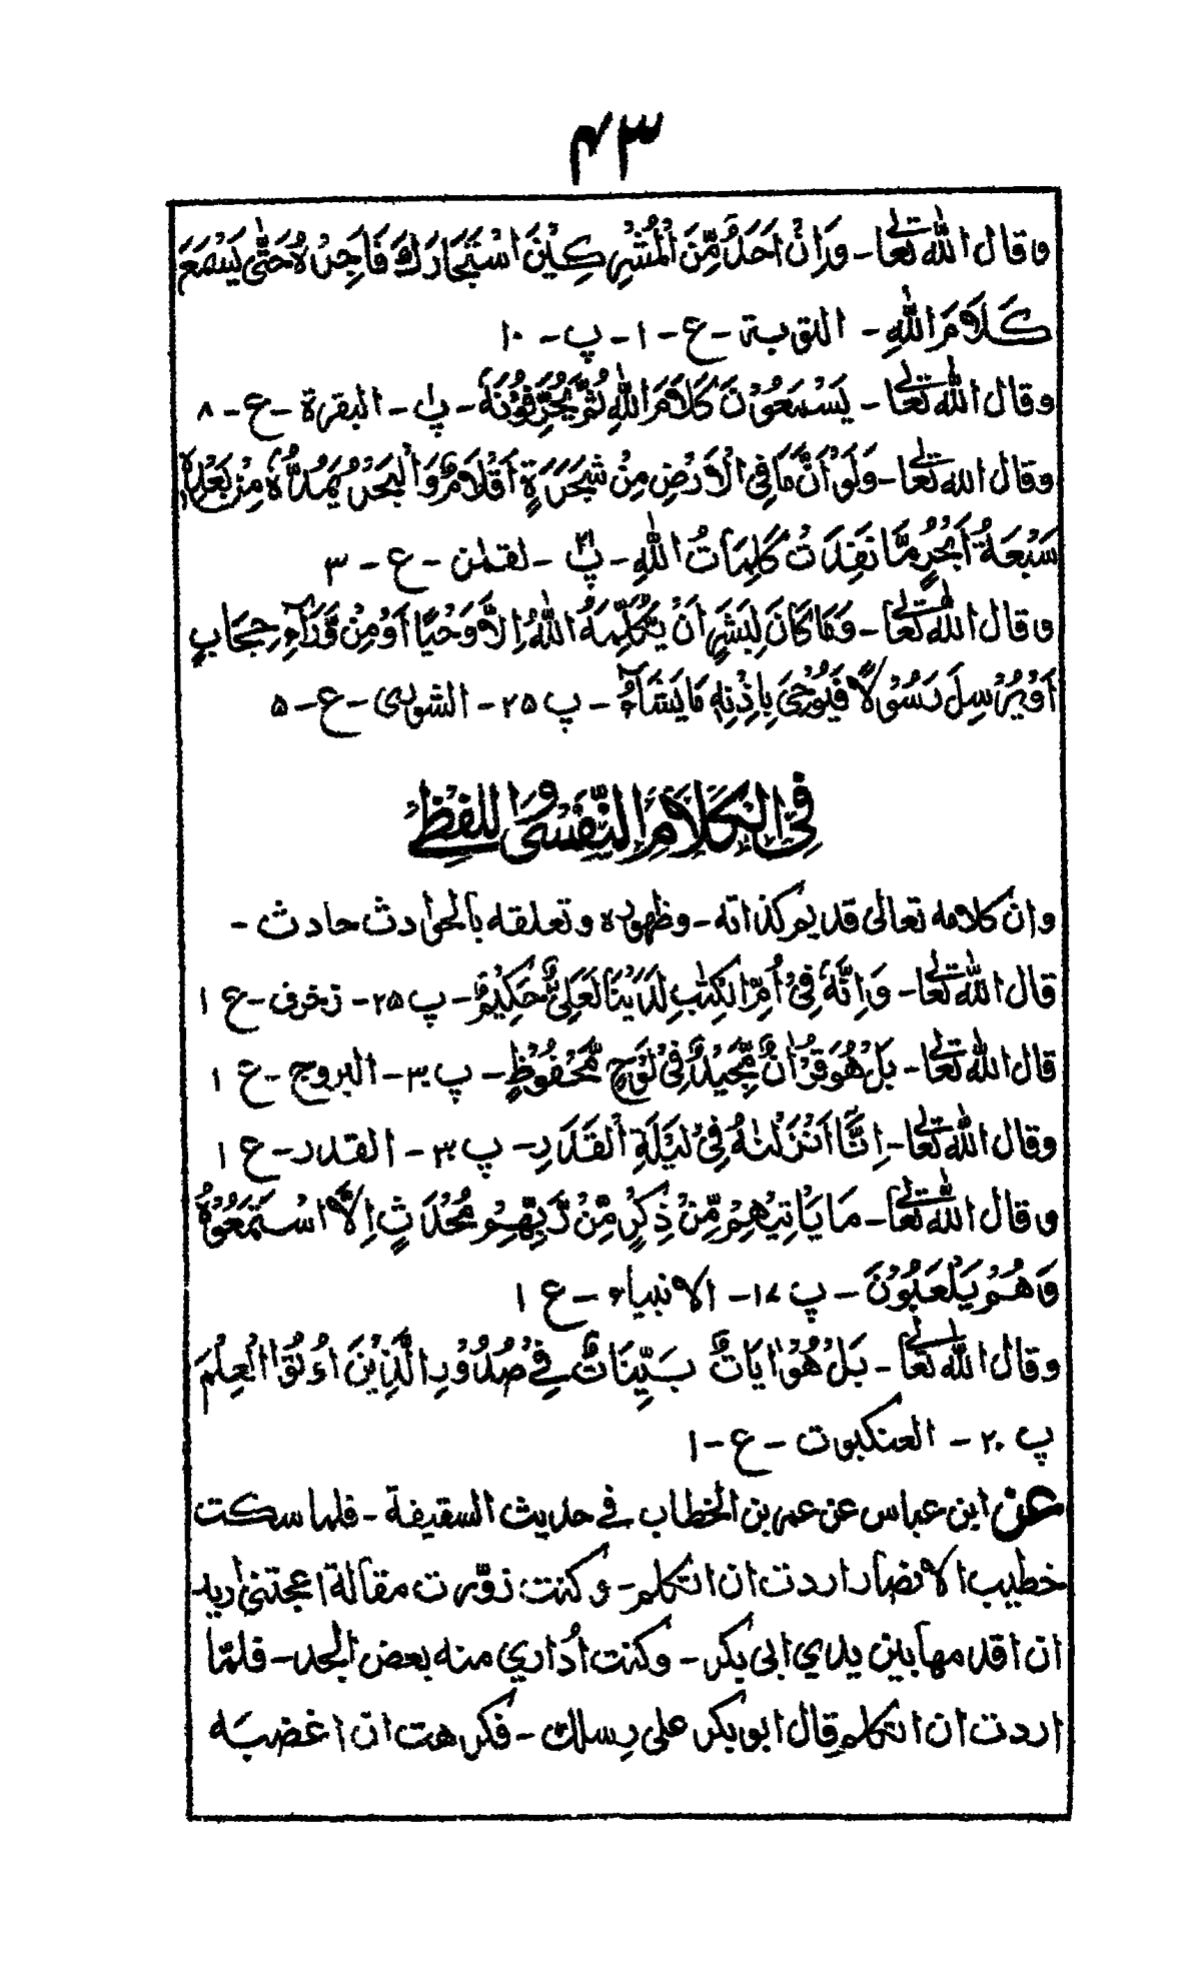 ۴۳
وقال الله تعالى - وَاِنْ اَحَدٌ مِّنَ الْمُشْرِكِيْنَ اسْتَجَارَكَ فَاَجِرْهُ حَتّٰى يَسْمَعَ
كَلَامَ اللّٰهِ - التوبة - ع - ۱ - پ - ۱۰
وقال الله تعالى - يَسْمَعُوْنَ كَلَامَ اللّٰهِ ثُمَّ يُحَرِّفُوْنَهٗ - پ۱ - البقرة - ع - ۸
وقال الله تعالى - وَلَوْ اَنَّ مَا فِى الْاَرْضِ مِنْ شَجَرَةٍ اَقْلَامٌ وَّالْبَحْرُ يَمُدُّهٗ مِنْ بَعْدِهٖ
سَبْعَةُ اَبْحُرٍ مَّا نَفِدَتْ كَلِمَاتُ اللّٰهِ - پ۲۱ - لقمٰن - ع - ۳
وقال الله تعالى - وَمَا كَانَ لِبَشَرٍ اَنْ يُّكَلِّمَهُ اللّٰهُ اِلَّا وَحْيًا اَوْ مِنْ وَّرَآءِ حِجَابٍ
اَوْ يُرْسِلَ رَسُوْلًا فَيُوْحِيَ بِاِذْنِهٖ مَا يَشَآءُ - پ ۲۵ - الشورى - ع - ۵
فِى الْكَلَامِ النَّفْسِى وَاللَّفْظِى
وان كلامه تعالى قديم كذاته - وظهوره وتعلقه بالحوادث حادث -
قال الله تعالى - وَاِنَّهٗ فِىْ اُمِّ الْكِتٰبِ لَدَيْنَا لَعَلِىٌّ حَكِيْمٌ - پ ۲۵ - زخرف - ع ۱
قال الله تعالى - بَلْ هُوَ قُرْاٰنٌ مَّجِيْدٌ فِىْ لَوْحٍ مَّحْفُوْظٍ - پ ۳۰ - البروج - ع ۱
وقال الله تعالى - اِنَّا اَنْزَلْنٰهُ فِىْ لَيْلَةِ الْقَدْرِ - پ ۳۰ - القدر - ع ۱
وقال الله تعالى - مَا يَاْتِيْهِمْ مِّنْ ذِكْرٍ مِّنْ رَّبِّهِمْ مُّحْدَثٍ اِلَّا اسْتَمَعُوْهُ
وَهُمْ يَلْعَبُوْنَ - پ ۱۷ - الانبياء - ع ۱
وقال الله تعالى - بَلْ هُوَ اٰيَاتٌ بَيِّنَاتٌ فِىْ صُدُوْرِ الَّذِيْنَ اُوْتُوا الْعِلْمَ
پ ۲۰ - العنكبوت - ع - ۱
عن ابن عباس عن عمر بن الخطاب فى حديث السقيفة - فلما سكت
خطيب الانصار اردت ان اتكلم - وكنت زوّرت مقالة اعجبتنى اريد
ان اقدمها بين يدي ابى بكر - وكنت اُدَاري منه بعض الحد - فلمّا
اردت ان اتكلم قال ابو بكر على رِسلك - فكرهت ان اغضبَه